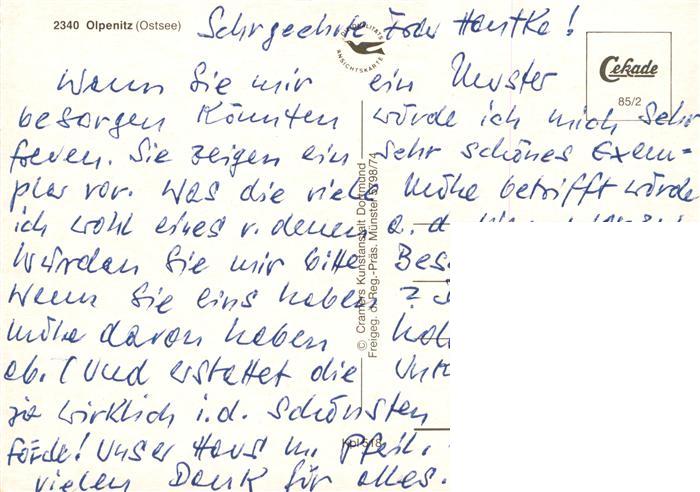 2340 Olpenitz (Ostsee)
Sehrgeehrte Frau Hantke!
QUALITÄTS
ANSICHTSKARTE
Cekade
85/2
Wenn Sie mir ein Muster
besorgen könnten würde ich mich sehr
freuen. Sie zeigen ein sehr schönes Exem=
plar vor. Was die viele Mühe betrifft würde
ich wohl eines v. denen a. d.
Würden Sie mir bitte Bes
wenn Sie eins haben ? S
Mühe davon haben
ab. (Und erstattet die
ja wirklich i. d. schönsten
Förde! Unser Haus m. Pfeil.
vielen Dank für alles.
© Cramers Kunstanstalt Dortmund
Freigeg. d. Reg.-Präs. Münster 5198/74
Kpl 518